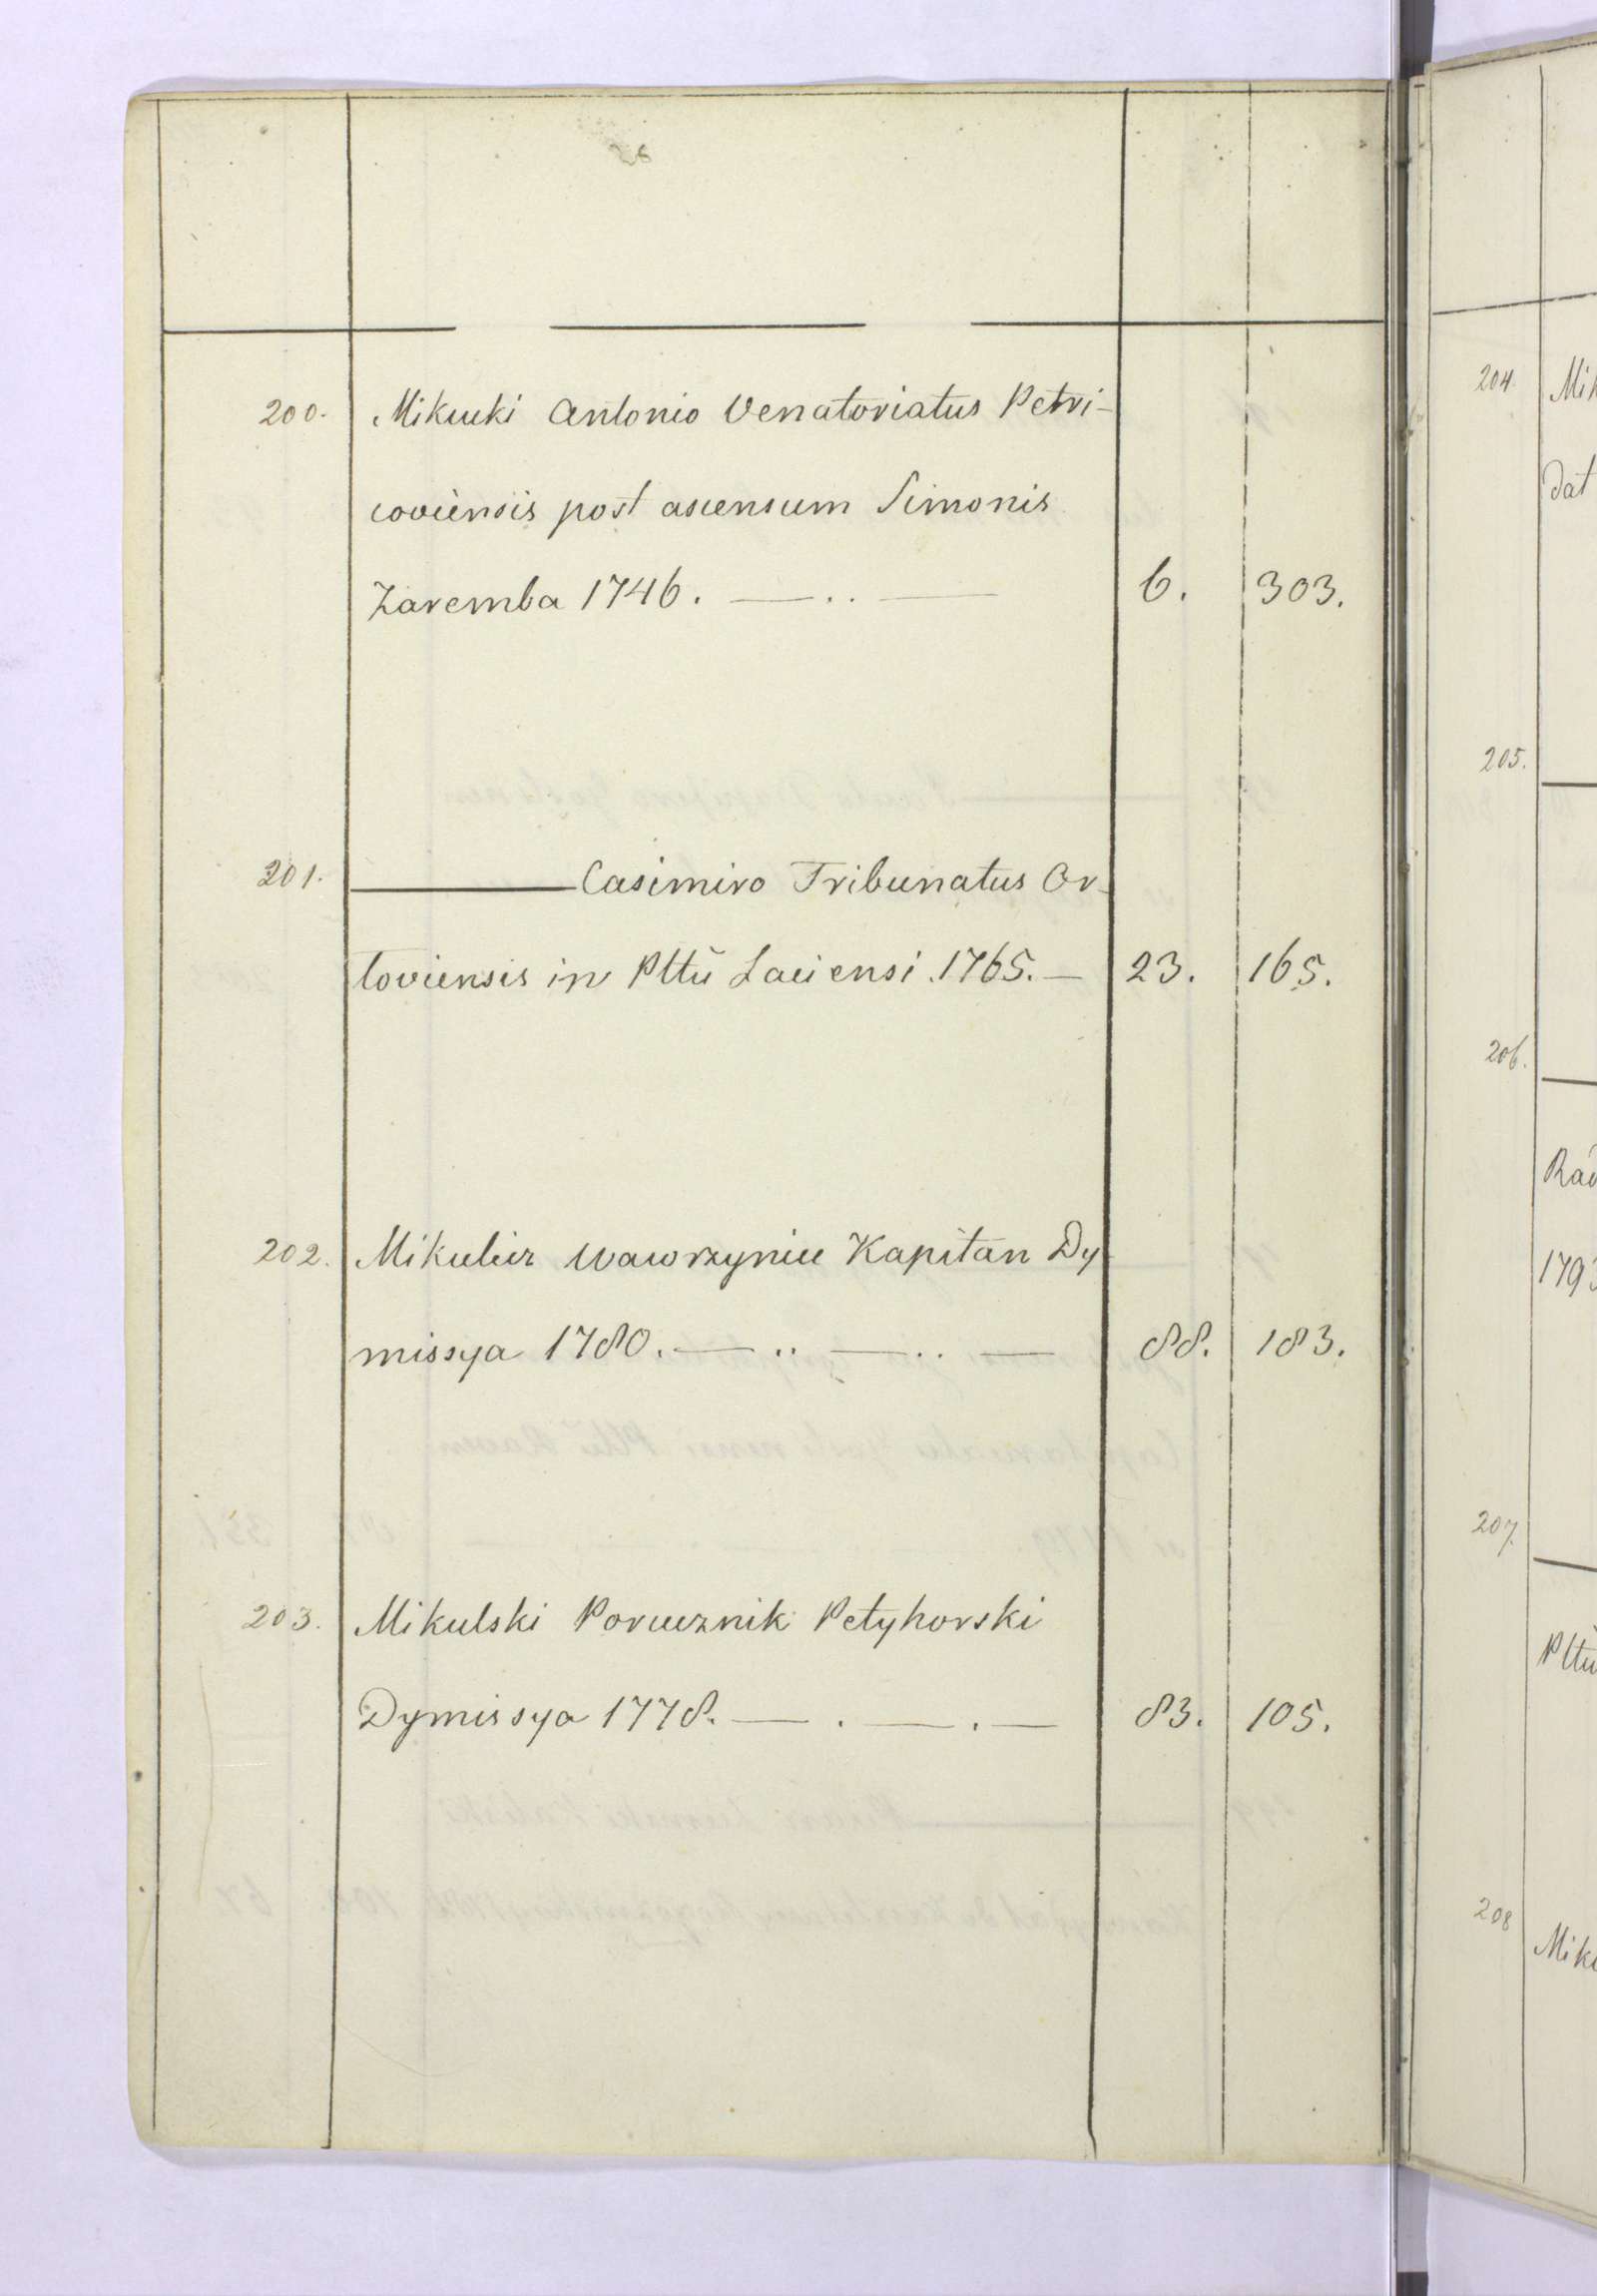 26
200. Mikucki Antonio Venatoriatus Petri-
coviensis post ascensum Simonis
Zaremba 1746. — .. — 6. 303.
201. ——— Casimiro Tribunatus Or-
loviensis in Plttũ Lanciensi 1765. — 23. 165.
202. Mikulicz Wawrzyniec Kapitan Dy
missya 1780. — .. — .. — 88. 183.
203. Mikulski Porucznik Petyhorski
Dymissya 1778. — . — . — 83. 105.
204. Mik
dat
205.
206.
Rad
1793
207.
Plttu
208
Miku